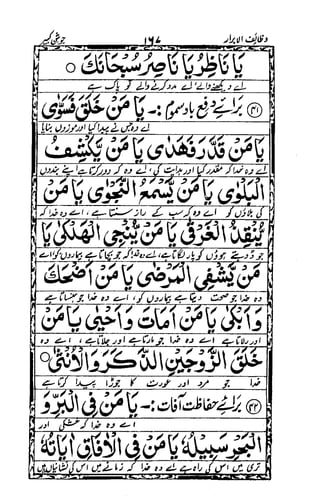 وظائف الابرار ۱۶۷ جوشن کبیر
يَا نَاظِرُ يَا نَاصِرُ سُبْحَانَكَ
اے دیکھنے والے اے مدد کرنے والے تو پاک ہے
(۴۱) برائے رفع باد سموم :- يَا مَنْ خَلَقَ فَسَوّٰى
اے وہ جس نے پیدا کیا اور موزوں بنایا
يَا مَنْ قَدَّرَ فَهَدٰى يَا مَنْ يَّكْشِفُ
اے وہ خدا کہ مقدر کیا اور ہدایت کی اے وہ کہ دور کرتا ہے اپنے بندوں
الْبَلْوٰى يَا مَنْ يَّسْمَعُ النَّجْوٰى يَا مَنْ
کی بلاؤں کو اے وہ کہ سب کے راز سنتا ہے، اے وہ خدا کہ
يُّنْقِذُ الْغَرْقٰى يَا مَنْ يُّنْجِى الْهَلْكٰى يَا
جو ڈوبتے ہوؤں کو پار لگاتا ہے، اے وہ خدا کہ جو بچاتا ہے
مَنْ يَّشْفِى الْمَرْضٰى يَا مَنْ اَضْحَكَ
وہ خدا جو صحت دیتا ہے بیماروں کو، اے وہ خدا جو ہنساتا ہے
وَاَبْكٰى يَا مَنْ اَمَاتَ وَاَحْيٰى يَا مَنْ
اور رلاتا ہے اے وہ خدا جو مارتا ہے اور جلاتا ہے، اے وہ
خَلَقَ الزَّوْجَيْنِ الذَّكَرَ وَالْاُنْثٰى
خدا جو مرد اور عورت کا جوڑا پیدا کرتا ہے
(۴۲) برائے حفاظت آفات :- يَا مَنْ فِى الْبَرِّ وَ
اے وہ خدا کہ خشکی اور
الْبَحْرِ سَبِيْلُهٗ يَا مَنْ فِى الْاٰفَاقِ اٰيَاتُهٗ
تری میں اس کی راہ ہے اے وہ خدا کہ زمانے میں اس کی نشانیاں ہیں